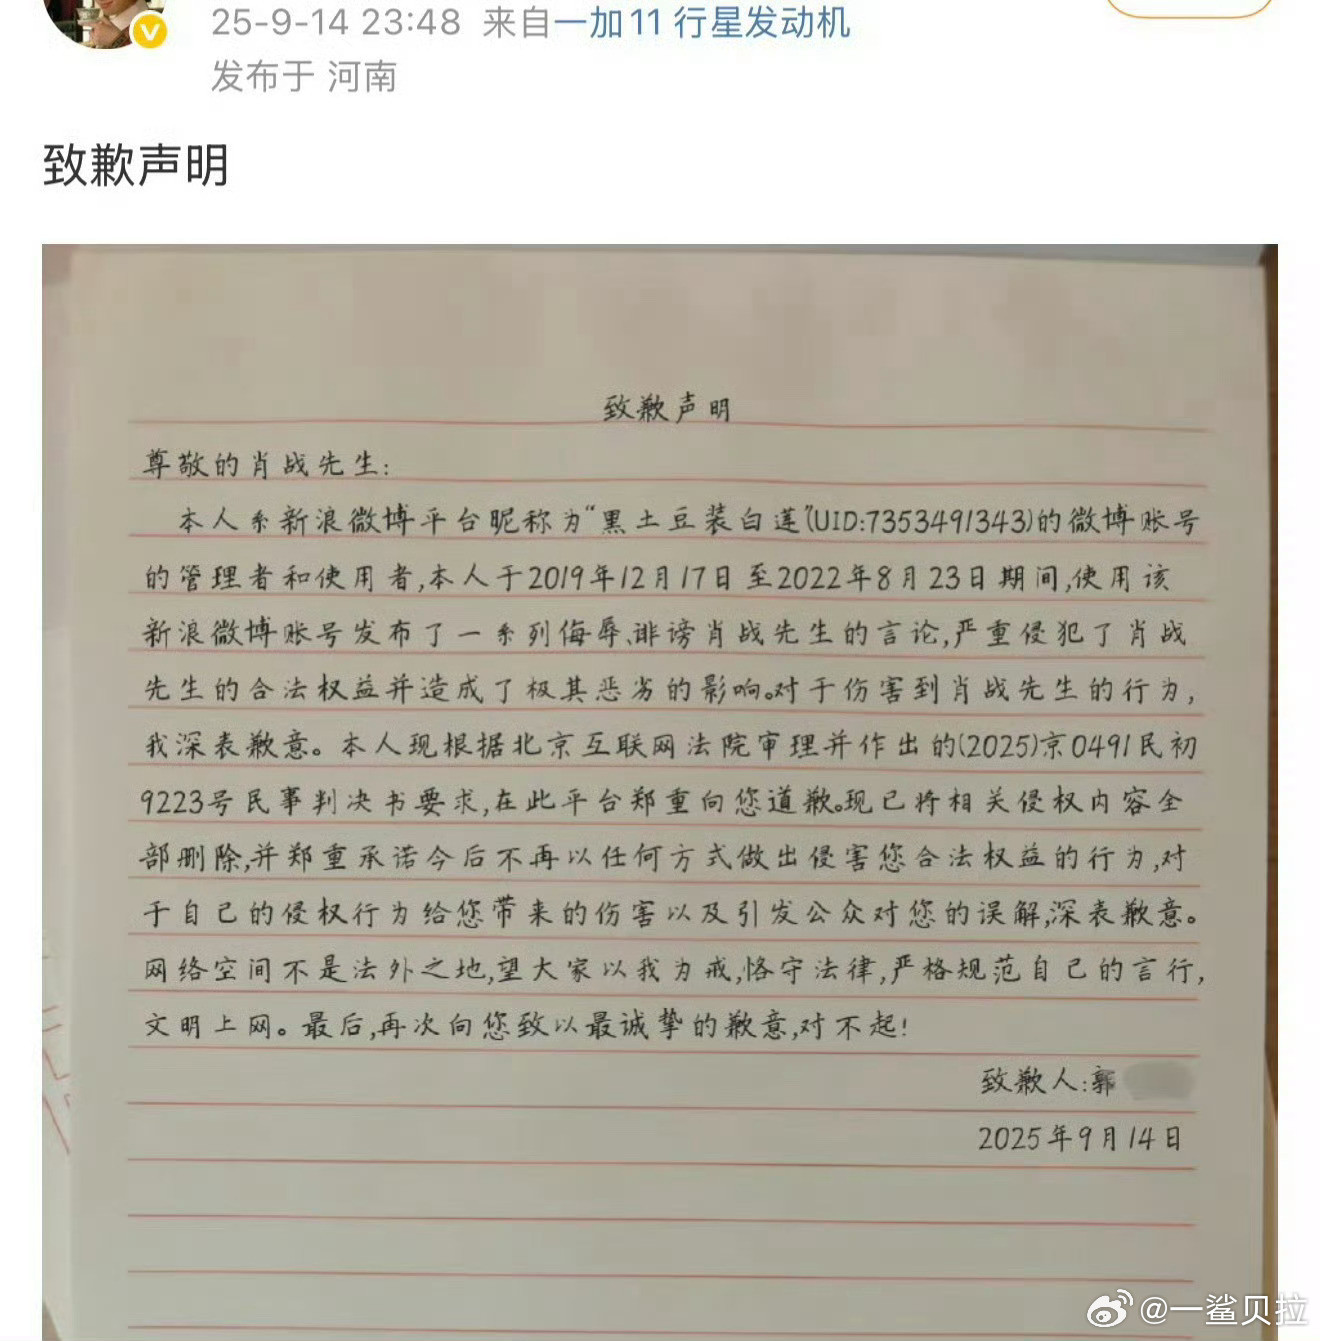 25-9-14 23:48 来自一加11 行星发动机
发布于 河南
致歉声明
致歉声明
尊敬的肖战先生:
本人系新浪微博平台昵称为“黑土豆装白莲”(UID:7353491343)的微博账号
的管理者和使用者,本人于2019年12月17日至2022年8月23日期间,使用该
新浪微博账号发布了一系列侮辱、诽谤肖战先生的言论,严重侵犯了肖战
先生的合法权益并造成了极其恶劣的影响。对于伤害到肖战先生的行为,
我深表歉意。本人现根据北京互联网法院审理并作出的(2025)京0491民初
9223号民事判决书要求,在此平台郑重向您道歉。现已将相关侵权内容全
部删除,并郑重承诺今后不再以任何方式做出侵害您合法权益的行为,对
于自己的侵权行为给您带来的伤害以及引发公众对您的误解,深表歉意。
网络空间不是法外之地,望大家以我为戒,恪守法律,严格规范自己的言行,
文明上网。最后,再次向您致以最诚挚的歉意,对不起!
致歉人:郭
2025年9月14日
@一鲨贝拉